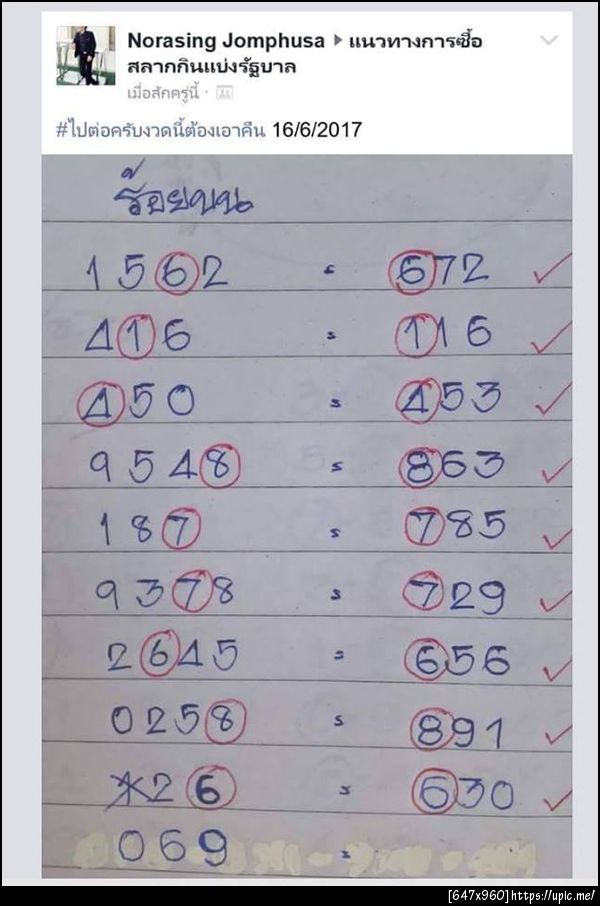 Norasing Jomphusa ▸ แนวทางการซื้อ
สลากกินแบ่งรัฐบาล
เมื่อสักครู่นี้ ·
#ไปต่อครับงวดนี้ต้องเอาคืน 16/6/2017
ร้อยบน
1562 = 672 ✓
416 = 116 ✓
450 = 453 ✓
9548 = 863 ✓
187 = 785 ✓
9378 = 729 ✓
2645 = 656 ✓
0258 = 891 ✓
26 = 630 ✓
069 =
[647x960]https://upic.me/